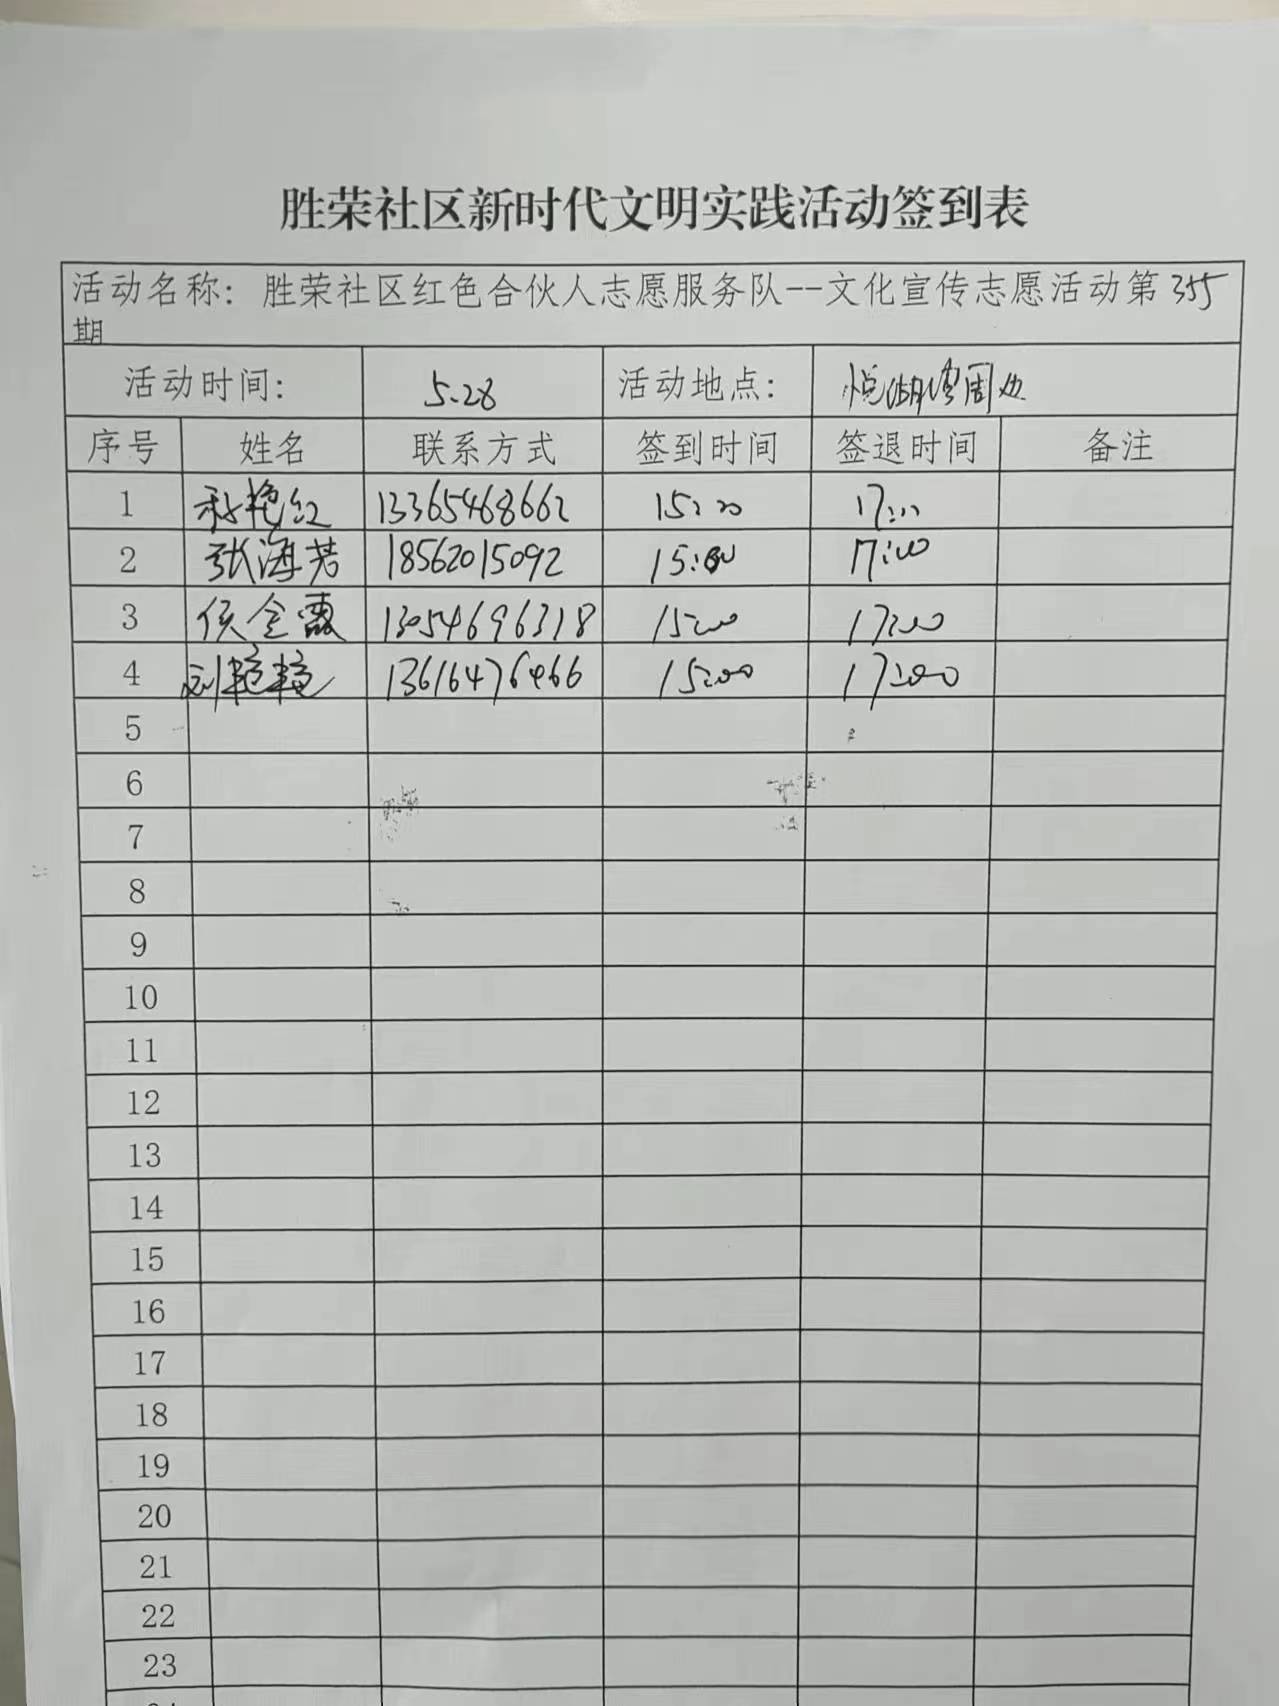 胜荣社区新时代文明实践活动签到表
活动名称：胜荣社区红色合伙人志愿服务队--文化宣传志愿活动第355
期
活动时间： 5.28 活动地点： 悦湖湾周边
序号 姓名 联系方式 签到时间 签退时间 备注
1 艳红 13365468662 15:00 17:00
2 张海芳 18562015092 15:00 17:00
3 侯金霞 13054696318 15:00 17:00
4 刘艳艳 13616476466 15:00 17:00
5
6
7
8
9
10
11
12
13
14
15
16
17
18
19
20
21
22
23